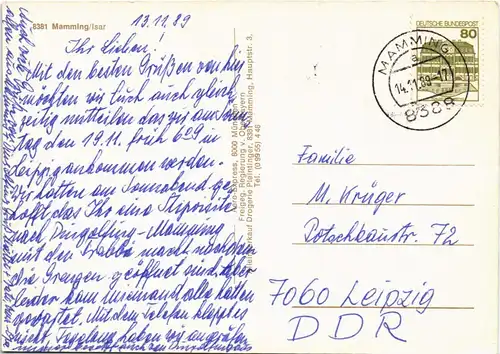 8381 Mamming/Isar
13.11.89
Ihr Lieben!
Mit den besten Grüßen von hier
möchten wir Euch auch gleich
zeitig mitteilen das wir am Sonn
tag den 19.11. früh 6.09 in
Leipzig ankommen werden.
Wir hatten am Sonnabend ge-
hofft das Ihr eine Stipvisite
nach Dingolfing-Mamming
mit den Trabbi macht nachdem
die Grenzen geöffnet sind aber
leider kam niemand alle hatten
gewartet. Mit dem Telefon klappt es
nicht, tagelang haben wir
Aero-Express, 8000 München
Freigeg. Regierung v. Oberbayern
Drogerie Plaintinger, 8381 Mamming, Hauptstr. 3,
Tel. (0 99 55) 4 46
DEUTSCHE BUNDESPOST
80
MAMMING
a
14.11.89-17
8389
Familie
M. Krüger
Rotschbaustr. 72
7060 Leipzig
DDR